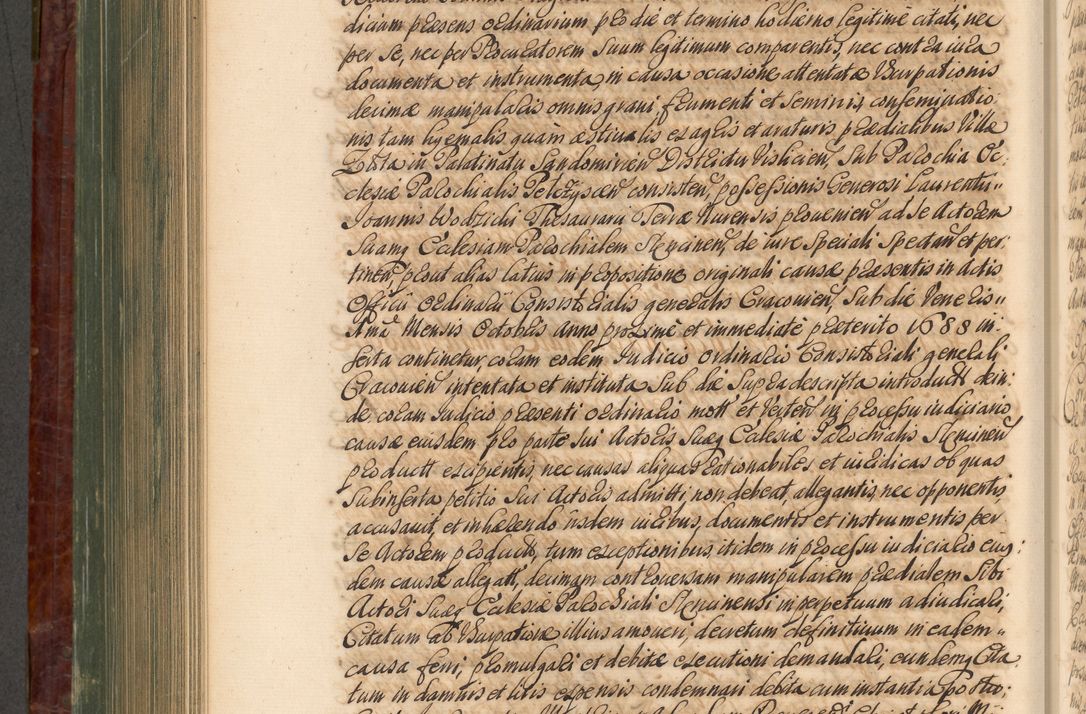 dicium præsens ordinarium pro die et termino hodierno legitimè citati, nec
per se, nec per Procuratorem suum legitimum comparentis, nec contra iura
documenta et instrumenta, in causa occasione attentatæ Usurpationis
decimæ manipularis omnis grani, frumenti et seminis conseminatio
nis tam hyemalis quàm æstiualis ex agris et araturis prædialibus Villæ
in Palatinatu Sandomirien Districtu Vislicien, sub Parochia Ec:
clesiæ Parochialis consisten, possessionis Generosi Laurentii"
Joannis Wodzicki Thesaurarii Terræ Nurensis prouenien ad se Actorem
Suamq Ecclesiam Parochialem de iure speciali spectan et per
tinen, prout alias latius in propositione originali causæ præsentis in Actis
Officii Ordinarii Consistorialis generalis Cracouien, sub die Veneris"
Ima Mensis Octobris Anno proximè et immediatè præterito 1688 in:
serta continetur, coram eodem Iudicio ordinario Consistoriali generali
Cracouien intentata et instituta sub die supra descripta introduct dein:
de coram Iudicio præsenti ordinario mott et Verten in processu iudiciario
causæ eiusdem pro parte sui Actoris Suæq Ecclesiæ Parochialis
productt excipientis, nec causas aliquas rationabiles et iuridicas ob quas
subinserta petitio sui Actoris admitti non debeat allegantis, nec opponentis
accusauit, et inhærendo iisdem iuribus, documentis et instrumentis per
se Actorem productt, tum exceptionibus itidem in processu iudiciario eius:
dem causæ allegatt, decimam controuersam manipularem prædialem Sibi
Actori Suæq Ecclesiæ Parochiali in perpetuum adiudicari,
Citatum ab Usurpatione illius amoueri, decretum definitiuum in eadem"
causa ferri, promulgari et debitæ executioni demandari, eundemq Cita
tum in damnis et litis expensis condemnari debita cum instantia postro: